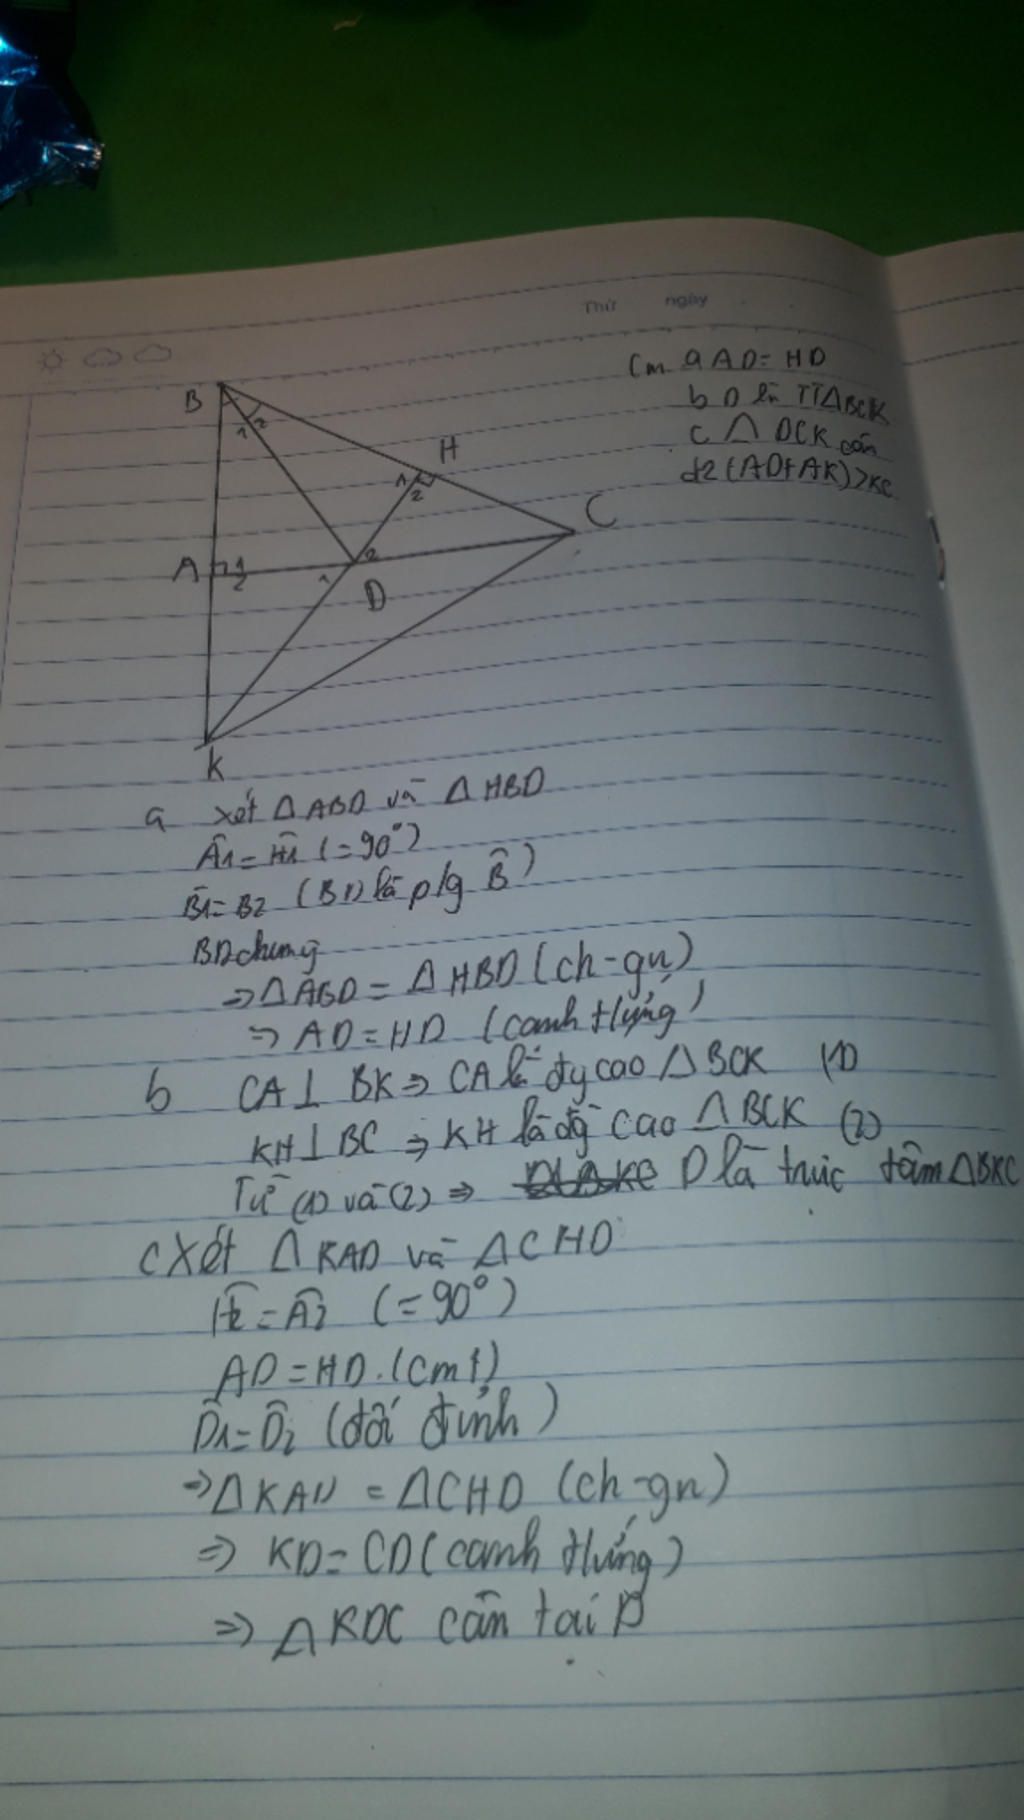 Thứ ngày
Cm a AD = HD
b D là TT△BCK
c △ DCK cân
d 2(AD+AK)>KC
B
1 2
H
1
2
C
A 1
2
2
1
D
K
a xét △ABD và △HBD
Â1 = Ĥ1 (= 90°)
B̂1 = B2 (BD là p/g B̂)
BD chung
⇒ △ABD = △HBD (ch-gn)
⇒ AD = HD (cạnh tứng)
b CA ⊥ BK ⇒ CA là đg cao △BCK (1)
KH ⊥ BC ⇒ KH là đg cao △BCK (2)
Từ (1) và (2) ⇒ D là trực tâm △BKC
c Xét △KAD và △CHD
Ĥ2 = Â2 (= 90°)
AD = HD (cmt)
D̂1 = D̂2 (đối đỉnh)
⇒ △KAD = △CHD (ch-gn)
⇒ KD = CD (cạnh tứng)
⇒ △KDC cân tại D